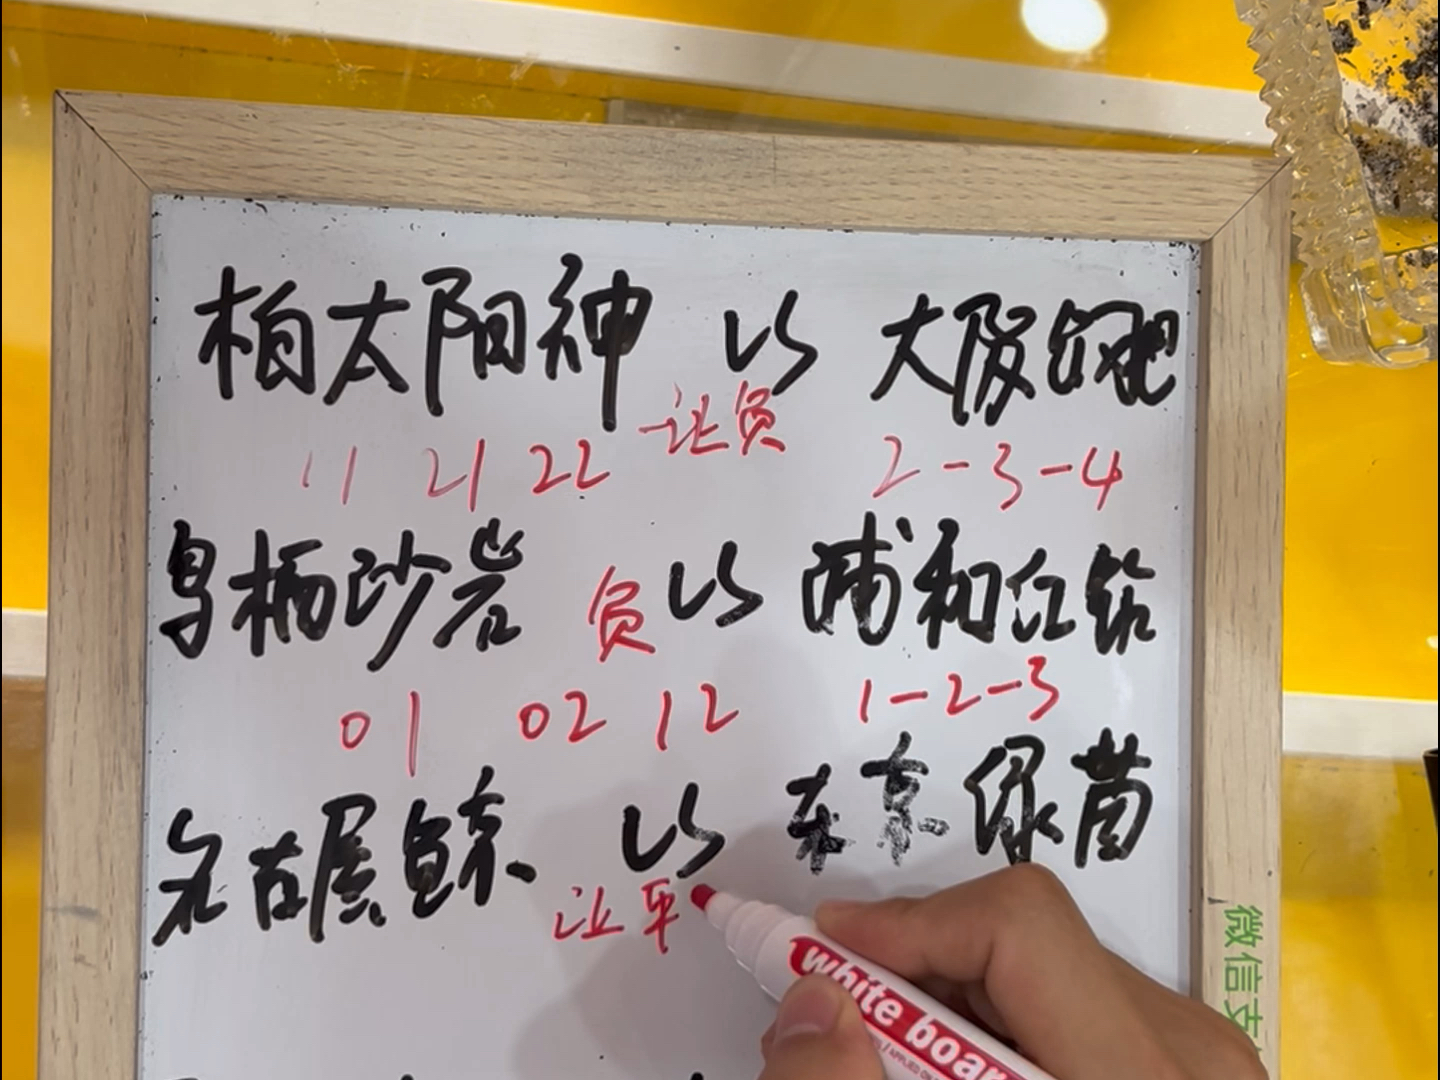 柏太阳神 VS 大阪飞脚
让负
11 21 22 2-3-4
鸟栖砂岩 负 VS 浦和红钻
01 02 12 1-2-3
名古屋鲸 VS 东京绿茵
让平
white boar
微信支